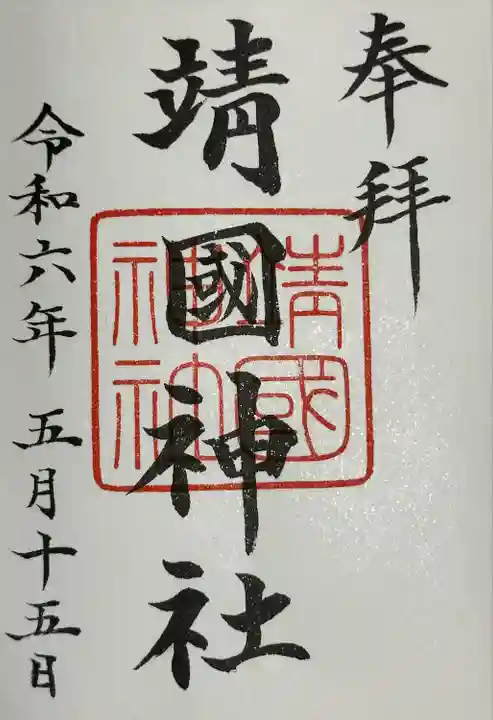 奉拝
靖國神社
靖國神社
令和六年 五月十五日